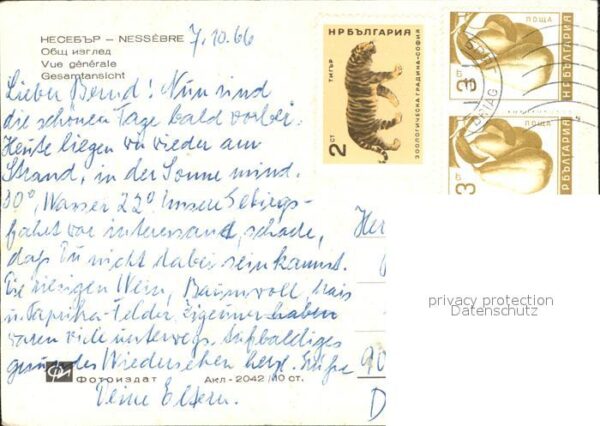 НЕСЕБЪР – NESSÈBRE
7.10.66
Общ изглед
Vue générale
Gesamtansicht
Lieber Bernd! Nun sind
die schönen Tage bald vorbei.
Heute liegen wir wieder am
Strand, in der Sonne mind.
30°, Wasser 22° Unsere Gebirgs-
fahrt war interessand, schade,
daß Du nicht dabei sein kannst.
Die riesigen Wein, Baumwoll, Mais
u. Paprika-Felder. Zigeuner haben
waren viele unterwegs. Auf baldiges
gesundes Wiedersehen herzl. Grüße
Deine Eltern.
Фотоиздат
Акл - 2042/10 ст.
НР БЪЛГАРИЯ
ТИГЪР
2 СТ
ЗООЛОГИЧЕСКА ГРАДИНА-СОФИЯ
ПОЩА
3
НР БЪЛГАРИЯ
ПОЩА
3
НР БЪЛГАРИЯ
Her
90
D
privacy protection
Datenschutz